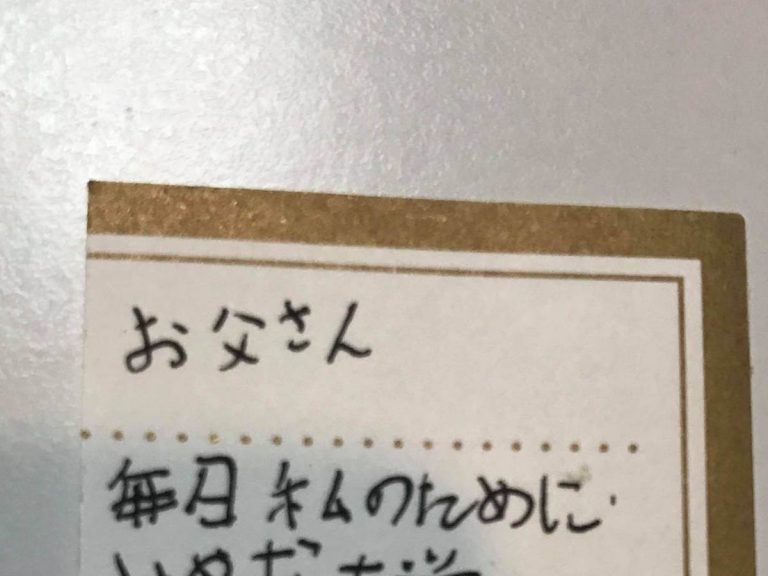 お父さん
毎日私のために